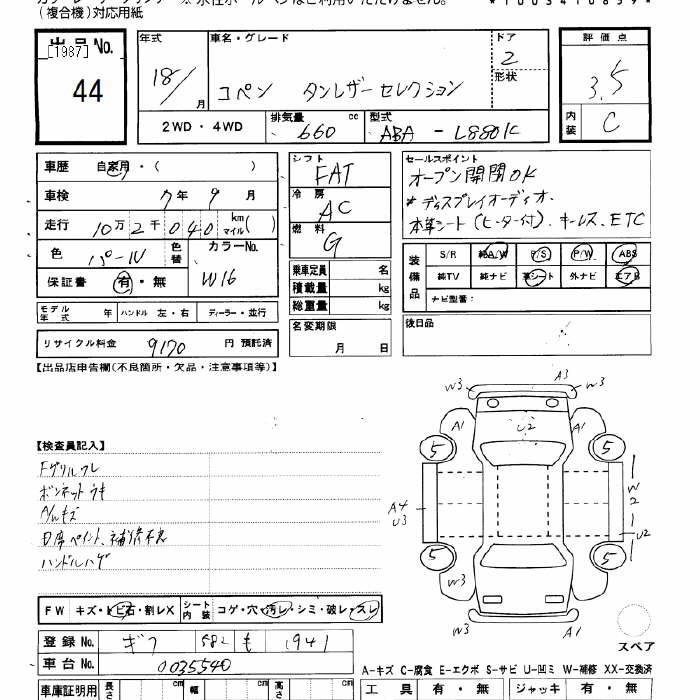 (複合機)対応用紙
出品No.
[1987]
44
年式
18/ 月
車名・グレード
コペン タンレザーセレクション
ドア
2
形状
評価点
3.5
内装
C
2WD・4WD
排気量 660 cc
型式 ABA - L880K
車歴 自家用・( )
車検 7年 9月
走行 10万2千040 km マイル( )
色 パール
色替
カラーNo.
W16
保証書 有・無
シフト
FAT
冷房
AC
燃料
G
乗車定員 名
積載量 kg
総重量 kg
セールスポイント
オープン開閉OK
*ディスプレイオーディオ.
本革シート(ヒーター付). キーレス、ETC
装備品
S/R 純A/W P/S P/W ABS
純TV 純ナビ 革シート 外ナビ エアB
ナビ型番:
モデル年式 年 ハンドル 左・右 ディーラー・並行
名変期限
月 日
後日品
リサイクル料金 9170 円 預託済
【出品店申告欄(不良箇所・欠品・注意事項等)】
W3 A3 W3
A1 U2 A1
5 5
A4 U3
W2
U2
5 5
W3
W3 A1
【検査員記入】
Fグリルワレ
ボンネットウキ
A/wキズ
ペイント、補修不良
ハンドルハゲ
FW キズ・ヒビ石・割レX
シート内装 コゲ・穴・汚レ・シミ・破レ・スレ
登録No. ギフ 582 も 1941
車台No. 0035540
スペア
A-キズ C-腐食 E-エクボ S-サビ U-凹ミ W-補修 XX-交換済
車庫証明用 長さ cm 幅 cm 高さ cm
工具 有・無 ジャッキ 有・無